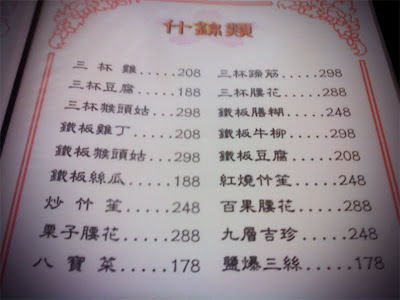 什錦類
三杯雞.....208
三杯豆腐.....188
三杯猴頭菇...298
鐵板雞丁.....208
鐵板猴頭菇...298
鐵板絲瓜.....188
炒竹笙.....248
栗子腰花.....288
八寶菜.....178
三杯蹄筋.....298
三杯腰花.....288
鐵板膳糊.....248
鐵板牛柳.....298
鐵板豆腐.....208
紅燒竹笙.....248
百果腰花.....288
九層吉珍.....248
鹽爆三絲.....178